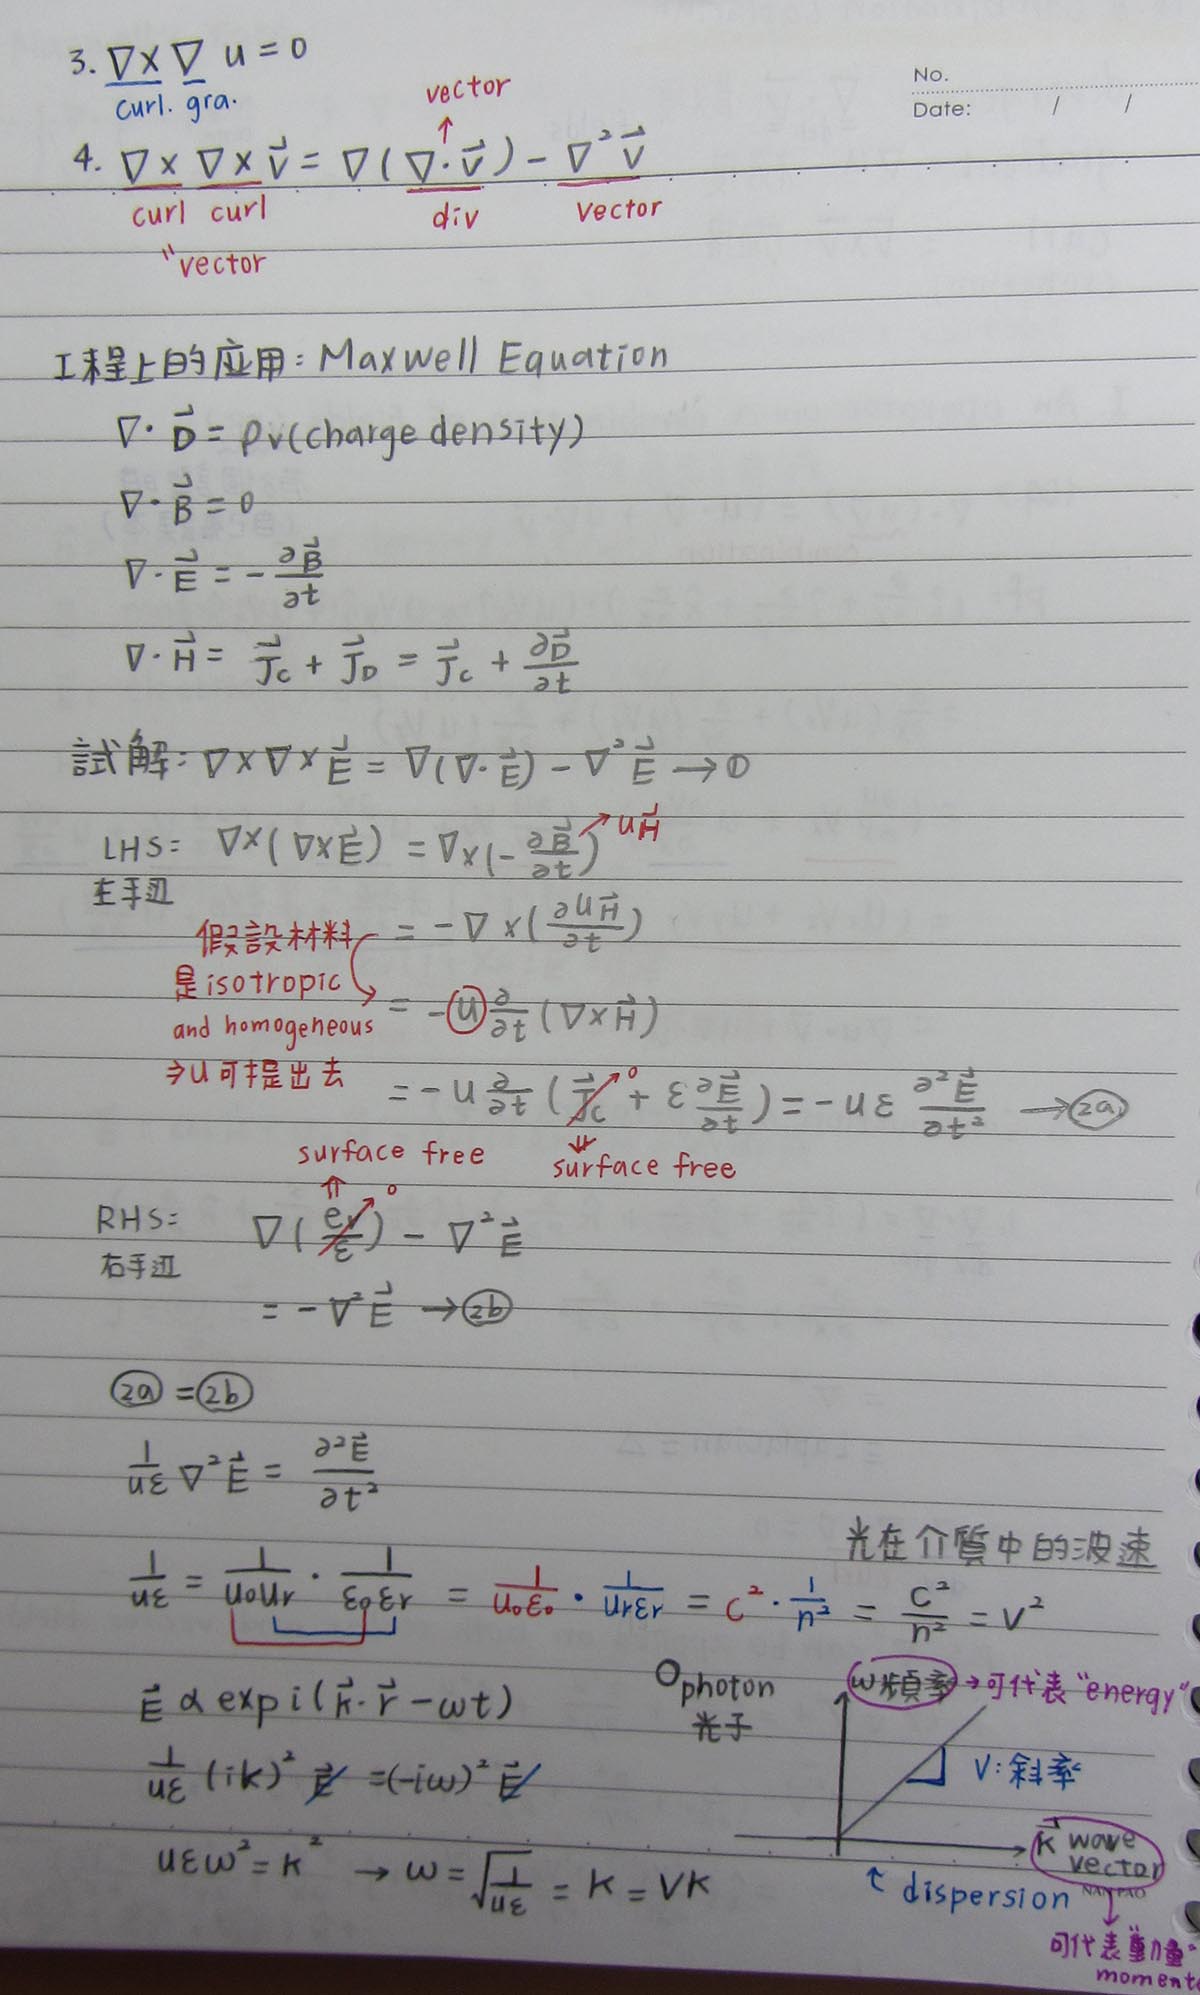 No.
Date: / /
3. ∇×∇ u = 0
curl. gra.
vector
4. ∇×∇×V⃗ = ∇(∇·V⃗) - ∇²V⃗
curl curl div vector
"vector
工程上的应用: Maxwell Equation
∇·D⃗ = ρv(charge density)
∇·B⃗ = 0
∇·E⃗ = - ∂B⃗/∂t
∇·H⃗ = J⃗c + J⃗D = J⃗c + ∂D⃗/∂t
試解: ∇×∇×E⃗ = ∇(∇·E⃗) - ∇²E⃗ → ①
LHS: ∇×(∇×E⃗) = ∇×(-∂B⃗/∂t) uH⃗
左手辺
= -∇×(∂uH⃗/∂t)
假設材料
是isotropic
and homogeneous
⇒u可提出去
= -u ∂/∂t (∇×H⃗)
= -u ∂/∂t (J⃗c 0 + ε ∂E⃗/∂t) = -uε ∂²E⃗/∂t² → 2a
surface free surface free
RHS: ∇(ev/ε 0) - ∇²E⃗
右手辺
= -∇²E⃗ → 2b
2a = 2b
1/uε ∇²E⃗ = ∂²E⃗/∂t²
光在介質中的波速
1/uε = 1/u₀ur · 1/ε₀εr = 1/u₀ε₀ · 1/urεr = c² · 1/n² = c²/n² = v²
E⃗ α exp i(k⃗·r⃗ - ωt)
photon
光子
ω頻率 → 可代表"energy"
1/uε (ik)² E⃗ = (-iω)² E⃗
V: 斜率
k⃗ wave
vector
uεω² = k² → ω = √(1/uε) = k = vk
↑ dispersion
NAN PAO
可代表"動量"
moment